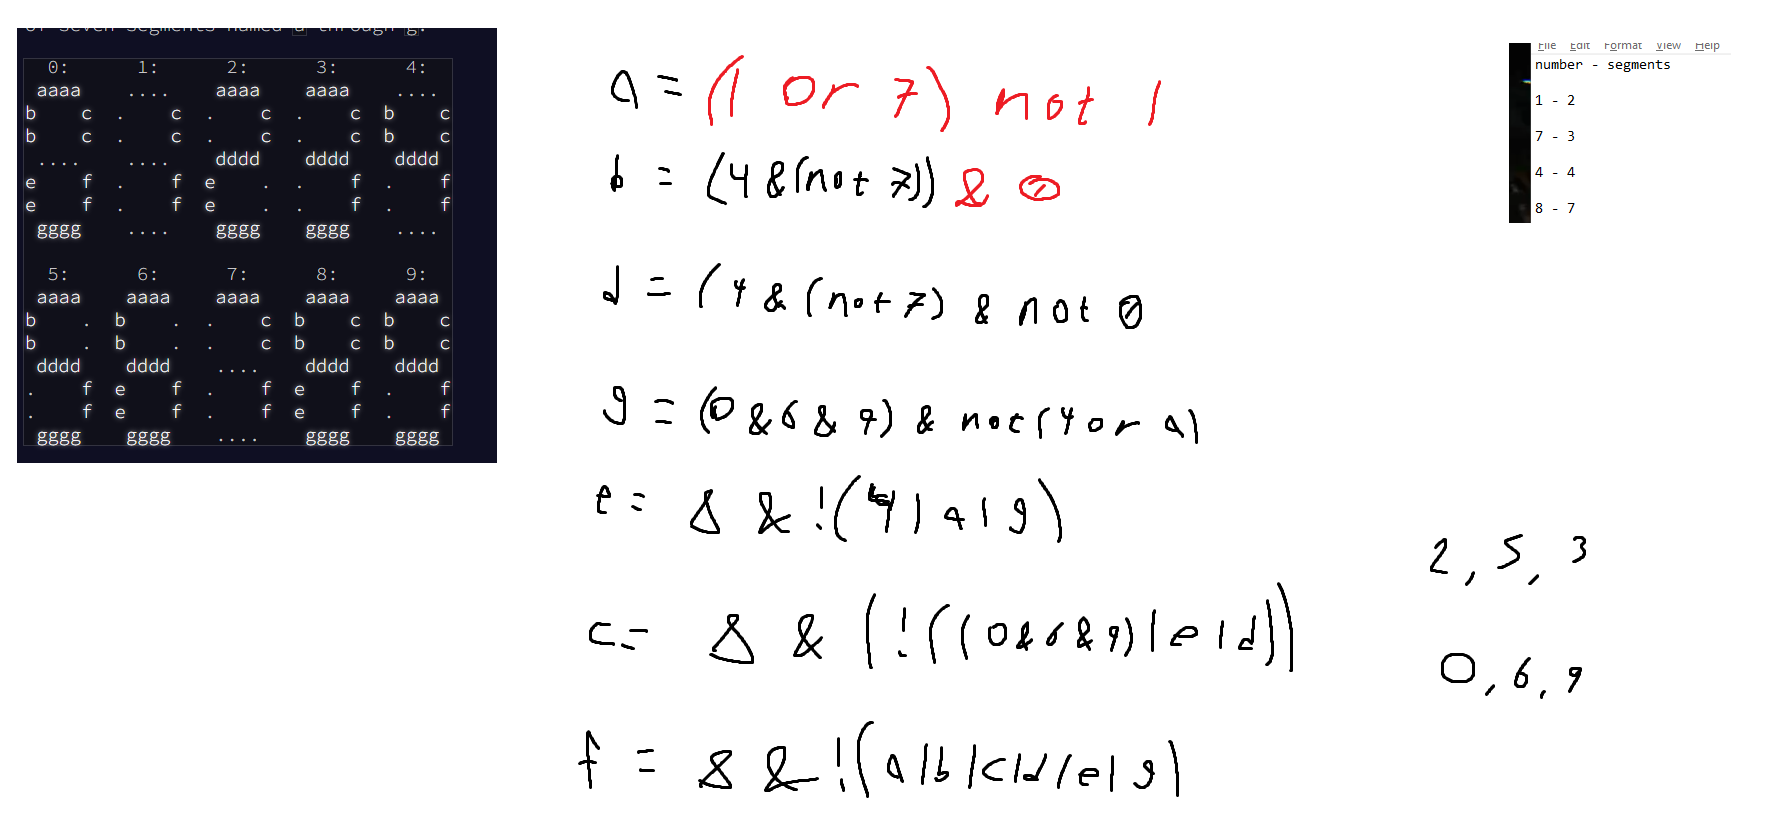 of seven segments named a through g:
0: 1: 2: 3: 4:
aaaa .... aaaa aaaa ....
b c . c . c . c b c
b c . c . c . c b c
.... .... dddd dddd dddd
e f . f e . . f . f
e f . f e . . f . f
gggg .... gggg gggg ....
5: 6: 7: 8: 9:
aaaa aaaa aaaa aaaa aaaa
b . b . . c b c b c
b . b . . c b c b c
dddd dddd .... dddd dddd
. f e f . f e f . f
. f e f . f e f . f
gggg gggg .... gggg gggg
a = (1 or 7) not 1
b = (4 & (not 7)) & 0
d = (4 & (not 7) & not 0
g = (0 & 6 & 9) & not (4 or a)
e = 8 & !(4 | a | g)
c = 8 & (!((0 & 6 & 9) | e | d))
f = 8 & !(a | b | c | d | e | g)
File Edit Format View Help
number - segments
1 - 2
7 - 3
4 - 4
8 - 7
2, 5, 3
0, 6, 9